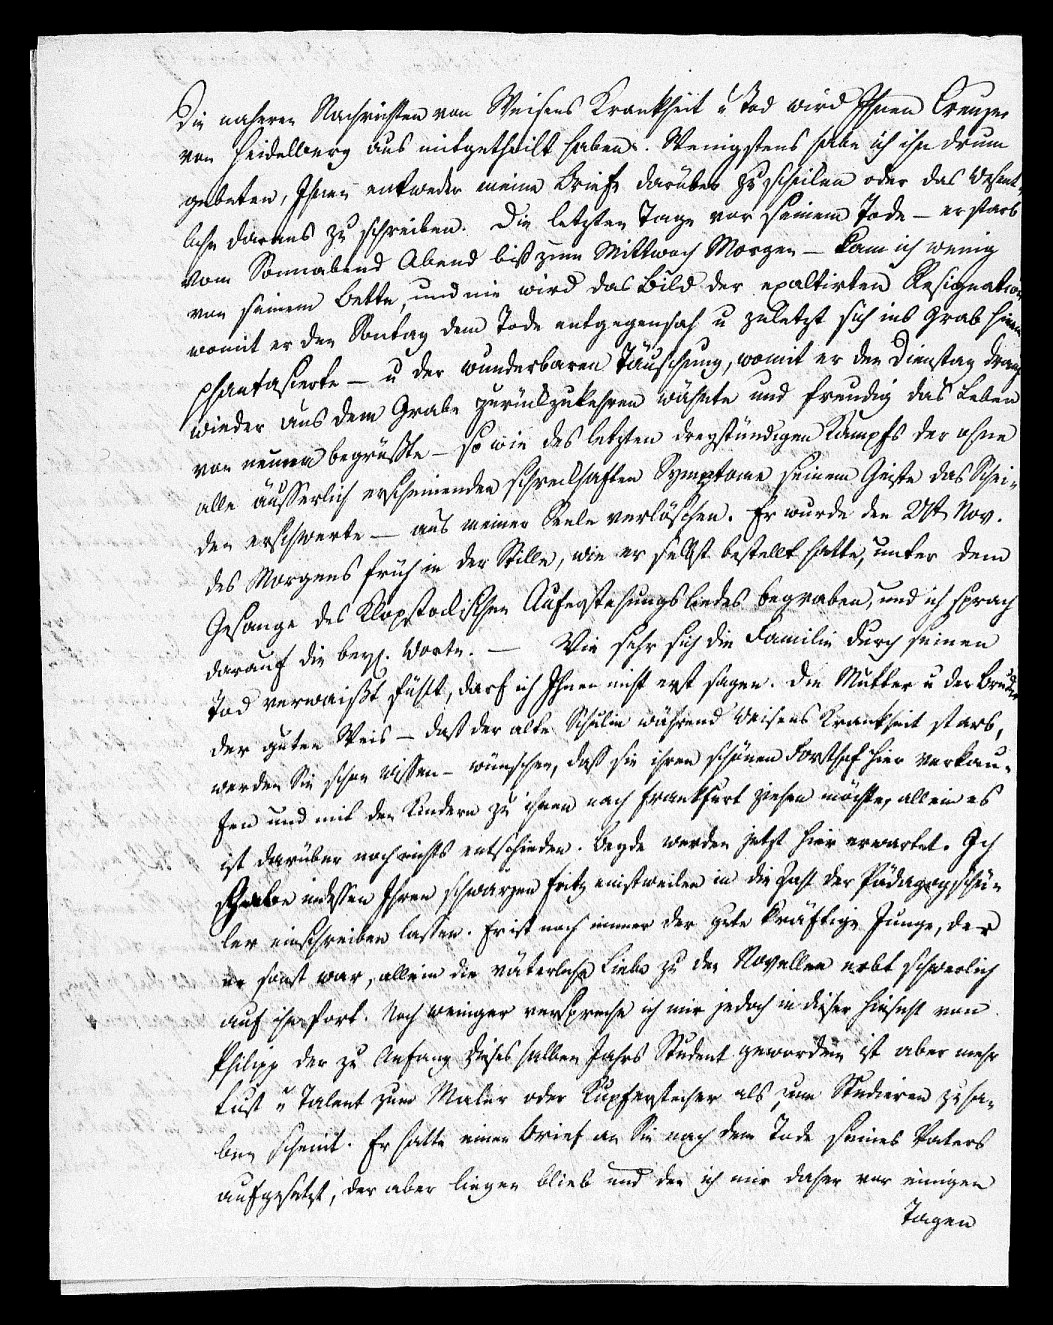 Die näheren Nachrichten von Weisens Krankheit u Tod wird Ihnen Creuzer
von Heidelberg aus mitgetheilt haben. Wenigstens habe ich ihn drum
gebeten, Ihnen entweder meine Briefe darüber zuzuschicken oder das Wesent-
liche daraus zu schreiben. Die letzten Tage vor seinem Tode – er starb
vom Sonnabend Abend biß zum Mittwoch Morgen – kam ich wenig
von seinem Bette, und nie wird das Bild der exaltirten Resignation
womit er den Sontag dem Tode entgegensah u zuletzt sich ins Grab hinein
phantasierte – u der wunderbaren Täuschung, womit er den Dienstag drauf
wieder aus dem Grabe zurückzukehren wähnte und freudig das Leben
von neuem begrüßte – so wie des letzten dreystündigen Kampfs der ohne
alle äusserlich erscheinenden schreckhaften Symptome seinem Geiste das Schei-
den erschwerte – aus meiner Seele verlöschen. Er wurde den Nov.
des Morgens früh in der Stille, wie er selbst bestellt hatte, unter dem
Gesange des Klopstockischen Auferstehungsliedes begraben, und ich sprach
darauf die Worte. – Wie sehr sich die Familie durch seinen
Tod verwaißt fühlt, darf ich Ihnen nicht erst sagen. Die Mutter u der Bruder
der guten Weis – daß der alte während Weisens Krankheit starb,
werden Sie schon wissen – wünschen, daß sie ihren schönen Forsthof hier verkau-
fen und mit den Kindern zu ihnen nach Frankfurt ziehen möchte, allein es
ist darüber noch nichts entschieden. Beyde werden jetzt hier erwartet. Ich
habe indessen Ihren schwarzen Fritz einstweilen in die Zahl der Pädagogschü-
ler einschreiben lassen. Er ist noch immer der gute kräftige Junge, der
er sonst war, allein die väterliche Liebe zu den Novellen erbt schwerlich
auf ihn fort. Noch weniger verspreche ich mir jedoch in dieser Hinsicht von
Philipp der zu Anfang dieses halben Jahrs Student geworden ist aber mehr
Lust u Talent zum Maler oder Kupferstecher als zum Studieren zu ha-
ben scheint. Er hatte einen Brief an Sie nach dem Tode seines Vaters
aufgesetzt, der aber liegen blieb und den ich mir daher vor einigen
Tagen